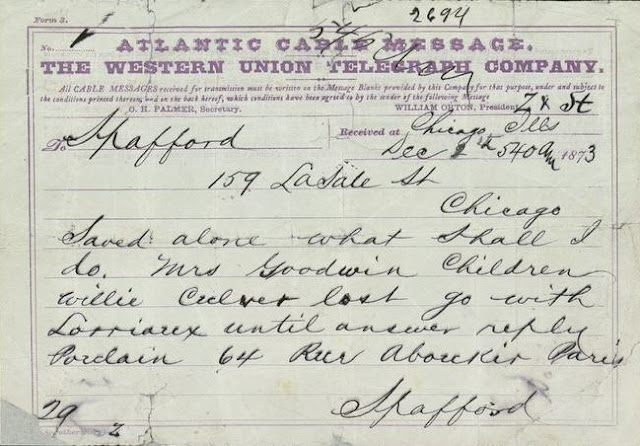 Form 2.
2694
No. 1
ATLANTIC CABLE MESSAGE.
THE WESTERN UNION TELEGRAPH COMPANY.
All CABLE MESSAGES received for transmission must be written on the Message Blanks provided by this Company for that purpose, under and subject to
the conditions printed thereon, and on the back hereof, which conditions have been agreed to by the sender of the following Message
O. H. PALMER, Secretary. WILLIAM ORTON, President
Received at Chicago Ills
To Spafford Dec 540 am 1873
159 LaSale St
Chicago
Saved alone what shall I
do. Mrs Goodwin Children
Willie Culver lost go with
Lorriaux until answer reply
Porclain 64 Rue Aboukir Paris
Spafford
29 2